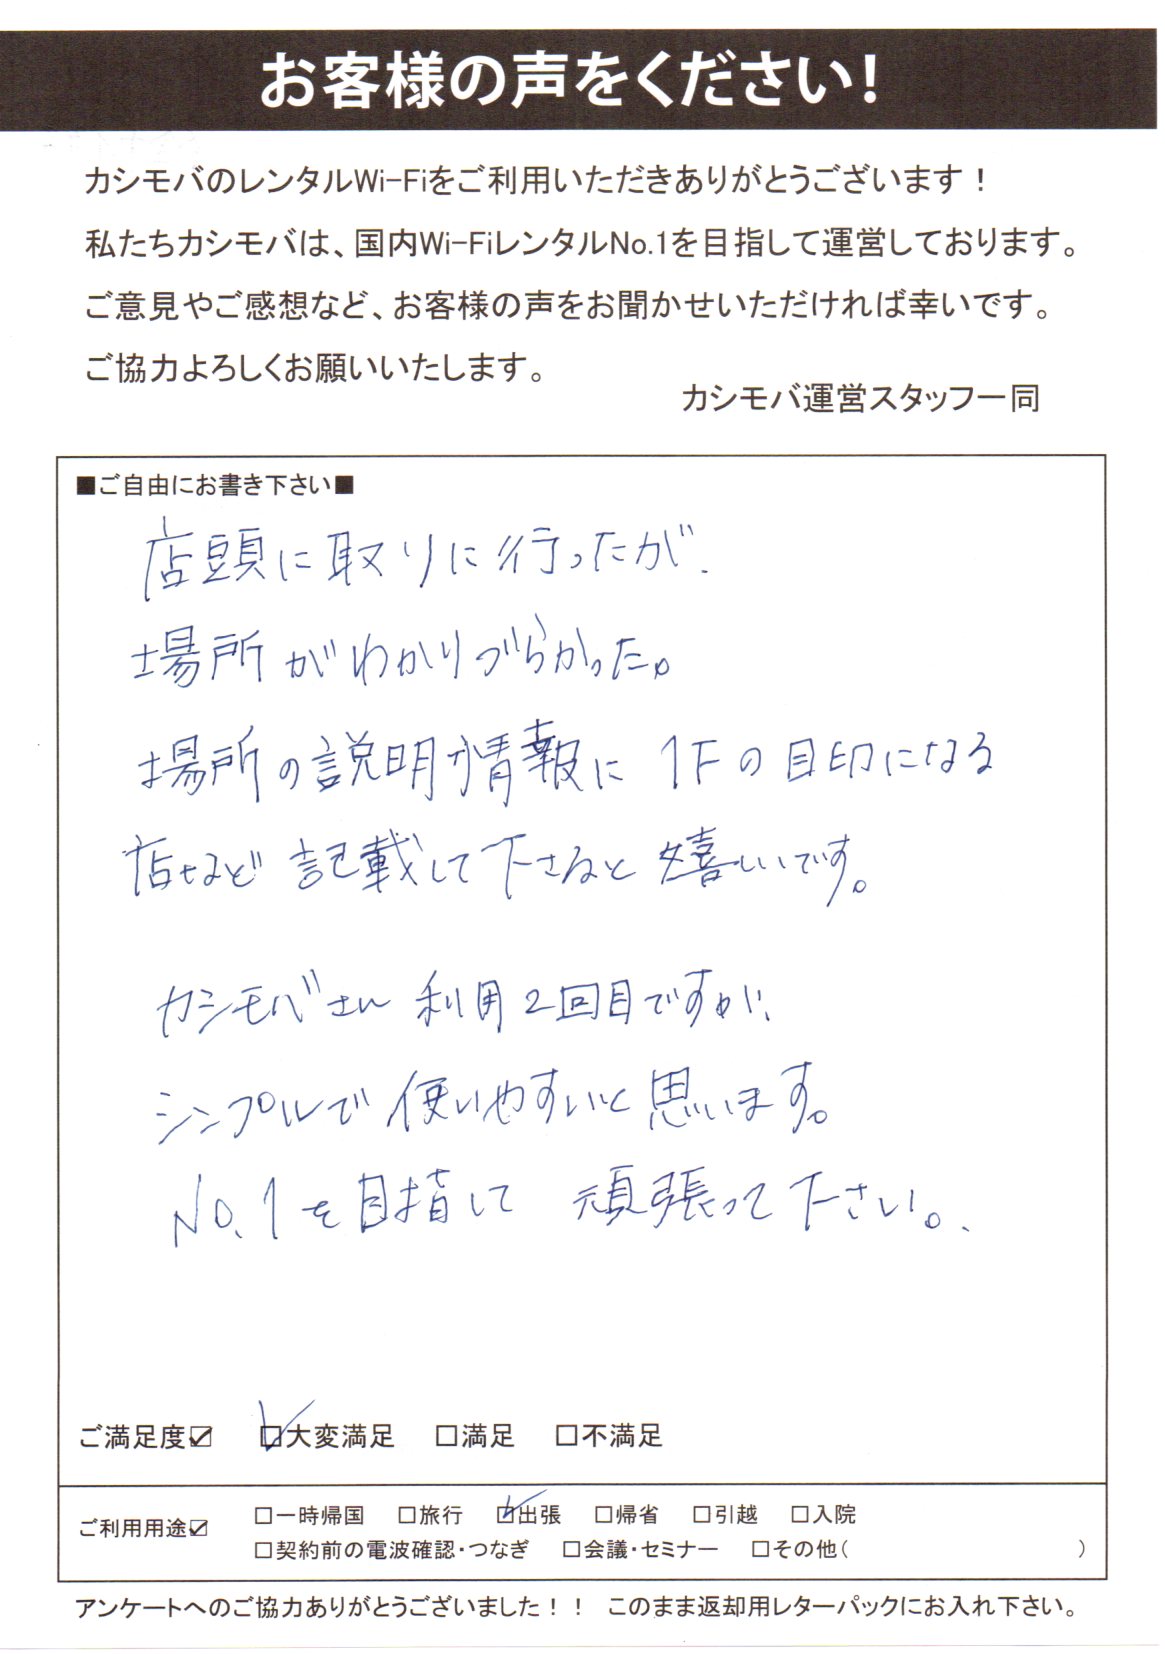 お客様の声をください!
カシモバのレンタルWi-Fiをご利用いただきありがとうございます！
私たちカシモバは、国内Wi-FiレンタルNo.1を目指して運営しております。
ご意見やご感想など、お客様の声をお聞かせいただければ幸いです。
ご協力よろしくお願いいたします。
カシモバ運営スタッフ一同
■ご自由にお書き下さい■
店頭に取りに行ったが、
場所がわかりづらかった。
場所の説明か情報に 1Fの目印になる
店など 記載して下さると 嬉しいです。
カシモバさん 利用2回目ですが、
シンプルで使いやすいと思います。
No.1を目指して 頑張って下さい。
ご満足度☑ ☑大変満足 □満足 □不満足
ご利用用途☑ □一時帰国 □旅行 ☑出張 □帰省 □引越 □入院
□契約前の電波確認・つなぎ □会議・セミナー □その他( )
アンケートへのご協力ありがとうございました！！ このまま返却用レターパックにお入れ下さい。